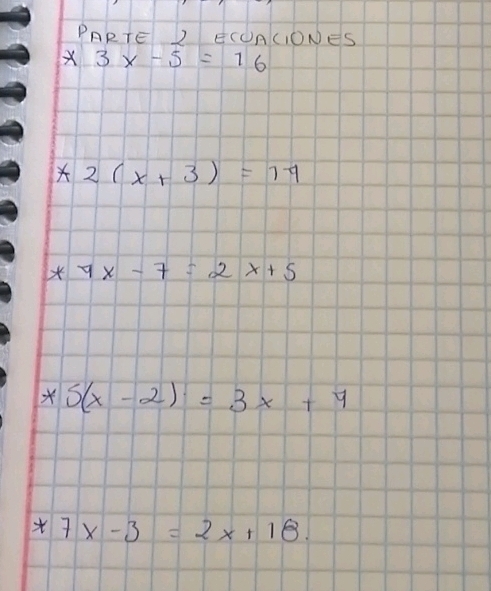 PARTE 2 ECUACIONES
* 3x - 5 = 16
* 2(x + 3) = 14
* 4x - 7 = 2x + 5
* 5(x - 2) = 3x + 4
* 7x - 3 = 2x + 18.